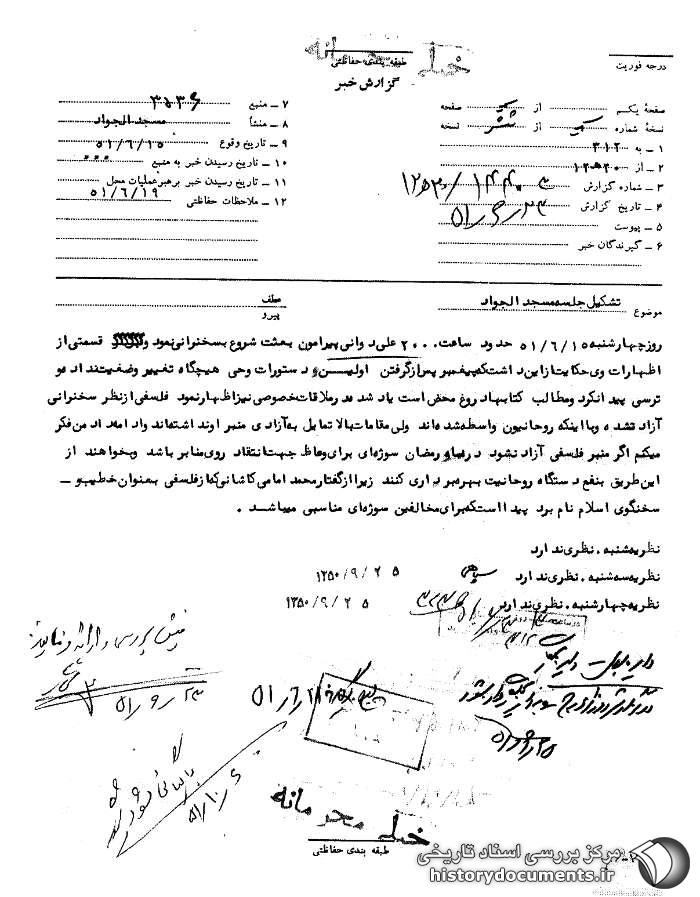 خیلی محرمانه
طبقه بندی حفاظتی
گزارش خبر
درجه فوریت
صفحهٔ یکم از یک صفحه
نسخهٔ شماره یک از شش نسخه
۱ ـ به ۳۱۲
۲ ـ از ۲۰ه۱۲
۳ ـ شماره گزارش
۴ ـ تاریخ گزارش
۵ ـ پیوست
۶ ـ گیرندگان خبر
۷ ـ منبع
۸ ـ منشأ مسجد الجواد
۹ ـ تاریخ وقوع ۵۱/۶/۱۵
۱۰ ـ تاریخ رسیدن خبر به منبع
۱۱ ـ تاریخ رسیدن خبر برهبر عملیات محل
۱۲ ـ ملاحظات حفاظتی ۵۱/۶/۱۹
موضوع تشکیل جلسه مسجد الجواد
عطف
پیرو
روز چهارشنبه ۵۱/۶/۱۵ حدود ساعت ۲۰۰۰ علی دوانی پیرامون بعثت شروع بسخنرانی نمود و قسمتی از
اظهارات وی حکایت از این داشت که پیغمبر پس از گرفتن اولیسن و دستورات وحی هیچگاه تغییر وضعیت نداد و
ترسی پیدا نکرد و مطالب کتابها دروغ محض است یاد شده در ملاقات خصوصی نیز اظهار نمود فلسفی از نظر سخنرانی
آزاد نشده و با اینکه روحانیون واسطه شده اند ولی مقامات بالا تمایل به آزادی منبر او نداشته اند و ادامه داد من فکر
میکنم اگر منبر فلسفی آزاد نشود در ماه رمضان سوژه ای برای وعاظ جهت انتقاد روی منابر باشد و بخواهند از
این طریق بنفع دستگاه روحانیت بهره برداری کنند زیرا از گفتار محمد امامی کاشانی که از فلسفی بعنوان خطیب و ـ
سخنگوی اسلام نام برد پیدا است که برای مخالفین سوژه ای مناسبی میباشد .
نظریه شنبه . نظری ندارد
نظریه سه شنبه . نظری ندارد ۱۲۵۰/۹/۲۵
نظریه چهارشنبه . نظری ندارد ۱۲۵۰/۹/۲۵
۵۱/۹/۲۳
بایگانی شود
۵۱/۱۰/۶
خیلی محرمانه
طبقه بندی حفاظتی
مرکز بررسی اسناد تاریخی
historydocuments.ir